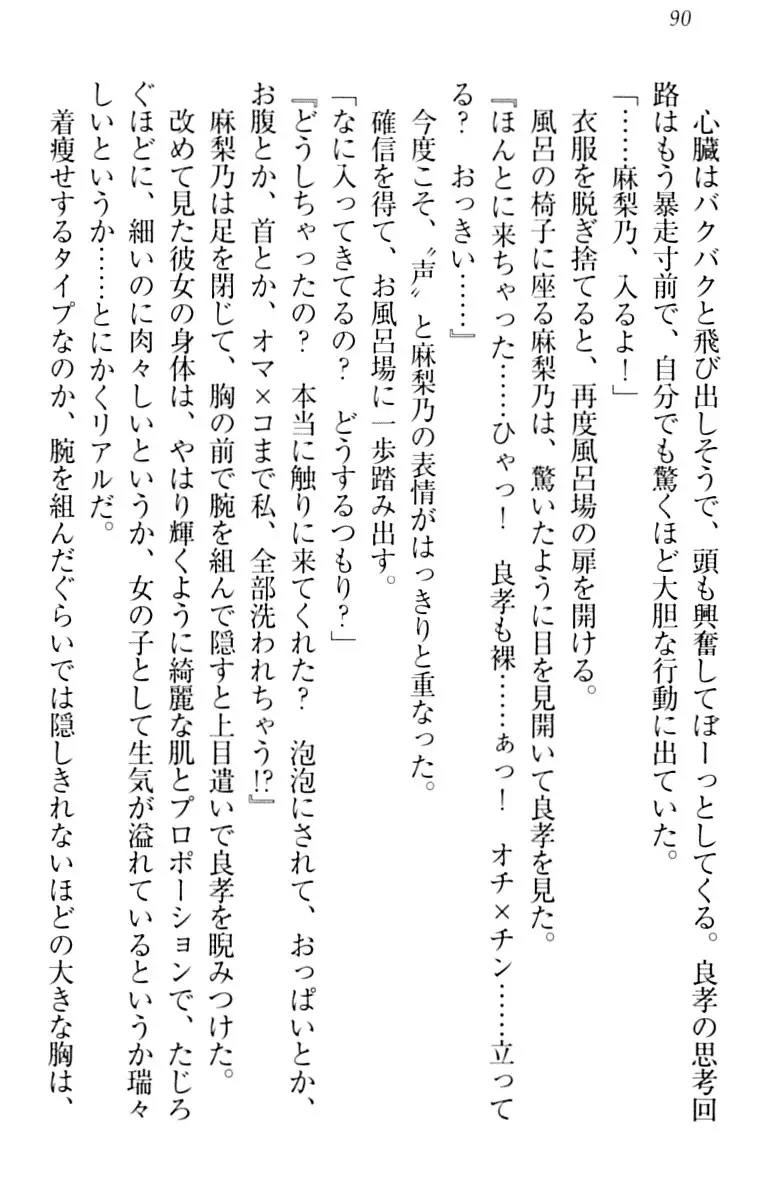 90
　心臓はバクバクと飛び出しそうで、頭も興奮してぼーっとしてくる。良孝の思考回
路はもう暴走寸前で、自分でも驚くほど大胆な行動に出ていた。
「……麻梨乃、入るよ！」
　衣服を脱ぎ捨てると、再度風呂場の扉を開ける。
　風呂の椅子に座る麻梨乃は、驚いたように目を見開いて良孝を見た。
『ほんとに来ちゃった……ひゃっ！　良孝も裸……ぁっ！　オチ×チン……立って
る？　おっきい……』
　今度こそ、〝声〟と麻梨乃の表情がはっきりと重なった。
　確信を得て、お風呂場に一歩踏み出す。
「なに入ってきてるの？　どうするつもり？」
『どうしちゃったの？　本当に触りに来てくれた？　泡泡にされて、おっぱいとか、
お腹とか、首とか、オマ×コまで私、全部洗われちゃう!?』
　麻梨乃は足を閉じて、胸の前で腕を組んで隠すと上目遣いで良孝を睨みつけた。
　改めて見た彼女の身体は、やはり輝くように綺麗な肌とプロポーションで、たじろ
ぐほどに、細いのに肉々しいというか、女の子として生気が溢れているというか瑞々
しいというか……とにかくリアルだ。
　着痩せするタイプなのか、腕を組んだぐらいでは隠しきれないほどの大きな胸は、